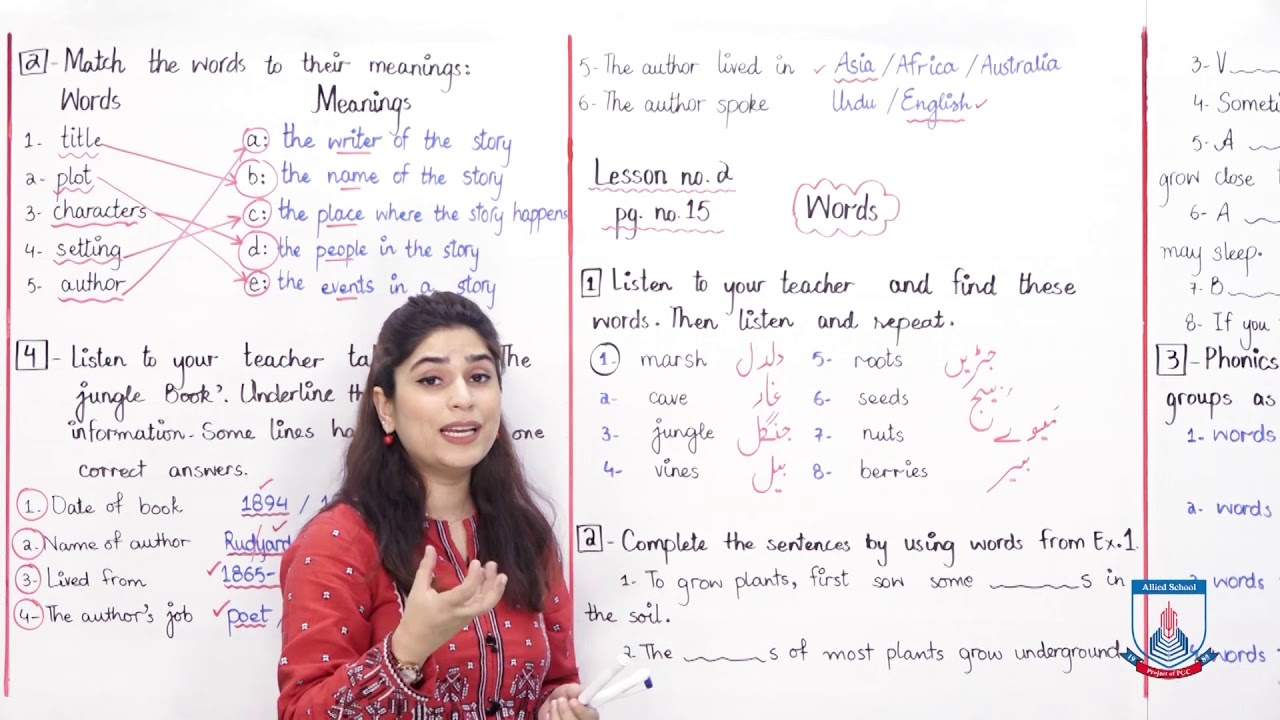 2 - Match the words to their meanings:
Words Meanings
1- title a: the writer of the story
2- plot b: the name of the story
3- characters c: the place where the story happens
4- setting d: the people in the story
5- author e: the events in a story
4 - Listen to your teacher The
jungle Book'. Underline
information. Some lines one
correct answers.
1. Date of book 1894 /
2. Name of author Rudyard
3- Lived from 1865-
4- The author's job poet
5- The author lived in Asia / Africa / Australia
6- The author spoke Urdu / English
Lesson no. 2
pg. no. 15
Words
1 Listen to your teacher and find these
words. Then listen and repeat.
1- marsh دلدل 5- roots جڑیں
2- cave غار 6- seeds بیج
3- jungle جنگل 7- nuts میوے
4- vines بیل 8- berries بیر
2 - Complete the sentences by using words from Ex.1.
1- To grow plants, first sow some ______s in
the soil.
2. The ______s of most plants grow underground
3- V
4-
5- A
grow close
6- A
may sleep.
7- B
8- If you
3 - Phonics
groups as
1- words
2- words
words
words
Allied School
Project of PGC